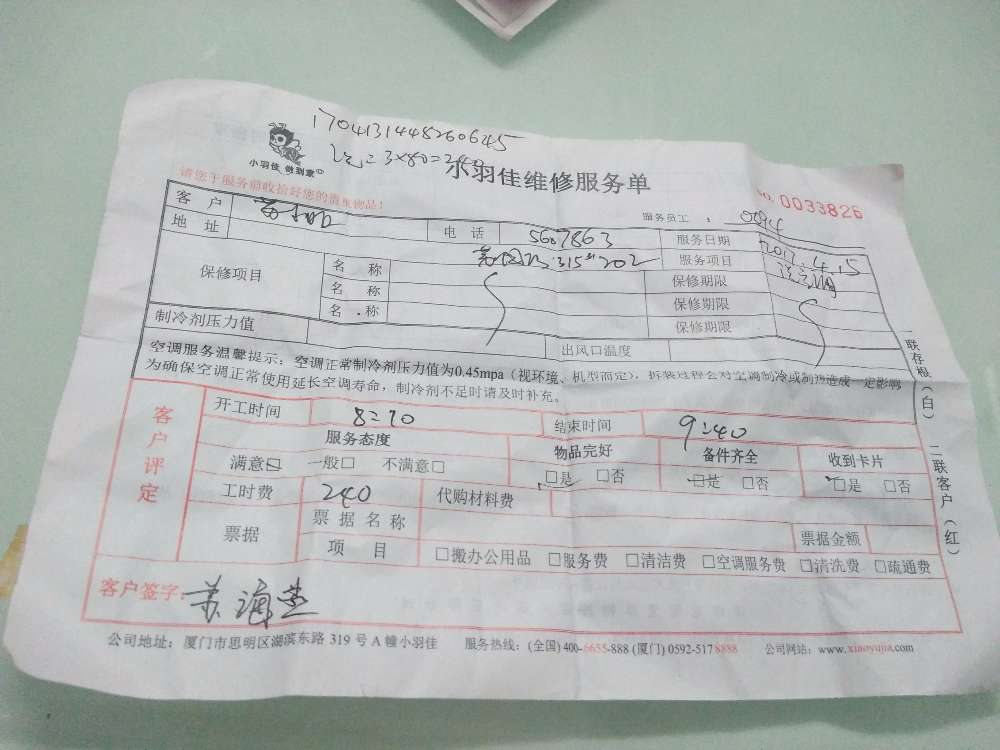 17041314482606245
3×80=240
小羽佳 做到家
小羽佳维修服务单
请您于服务前收拾好您的贵重物品!
No. 0033826
服务员工: 0094
客户
电话 5607863
服务日期 2017.4.15
地址
315# 202
服务项目
保修项目
名称 保修期限
名称 保修期限
名称 保修期限
制冷剂压力值 出风口温度
空调服务温馨提示:空调正常制冷剂压力值为0.45mpa(视环境、机型而定),拆装过程会对空调制冷或制热造成一定影响
为确保空调正常使用延长空调寿命,制冷剂不足时请及时补充。
客户评定
开工时间 结束时间 9:40
服务态度 物品完好 备件齐全 收到卡片
满意□ 一般□ 不满意□ □是 □否 □是 □否 □是 □否
工时费 240 代购材料费
票据 票据名称 票据金额
项目 □搬办公用品 □服务费 □清洁费 □空调服务费 □清洗费 □疏通费
客户签字:
公司地址:厦门市思明区湖滨东路 319 号 A 幢小羽佳 服务热线:(全国) 400-6655-888 (厦门) 0592-5178888 公司网站:www.xiaoyujia.com
一联存根(白) 二联客户(红)